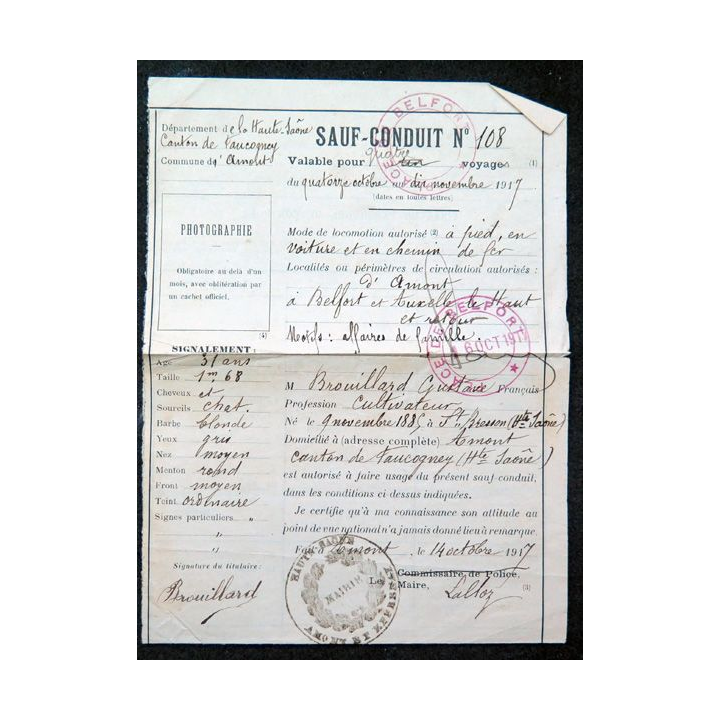 Département de la Haute-Saône
Canton de Faucogney
Commune d'Amont
SAUF-CONDUIT N° 108
Valable pour quatre un voyages (1)
du quatorze octobre au dix novembre 1917
(dates en toutes lettres)
PHOTOGRAPHIE
Obligatoire au delà d'un
mois, avec oblitération par
un cachet officiel.
(4)
Mode de locomotion autorisé (2) à pied, en
voiture et en chemin de fer
Localités ou périmètres de circulation autorisés :
d'Amont
à Belfort et Auxelle-le-Haut
et retour
Motifs : affaires de famille
PLACE DE BELFORT
PLACE DE BELFORT
OCT 191
SIGNALEMENT :
Age 31 ans
Taille 1m 68
Cheveux et
Sourcils chat.
Barbe blonde
Yeux gris
Nez moyen
Menton rond
Front moyen
Teint ordinaire
Signes particuliers "
"
"
Signature du titulaire :
Brouillard
M Brouillard Gustave Français
Profession Cultivateur
Né le 9 novembre 1885 à St Bresson (Hte Saône)
Domicilié à (adresse complète) Amont
canton de Faucogney (Hte Saône)
est autorisé à faire usage du présent sauf conduit,
dans les conditions ci-dessus indiquées.
Je certifie qu'à ma connaissance son attitude au
point de vue national n'a jamais donné lieu à remarque.
Fait à Amont, le 14 octobre 1917
Commissaire de Police,
Le Maire,
(3)
MAIRIE
HAUTE-SAONE